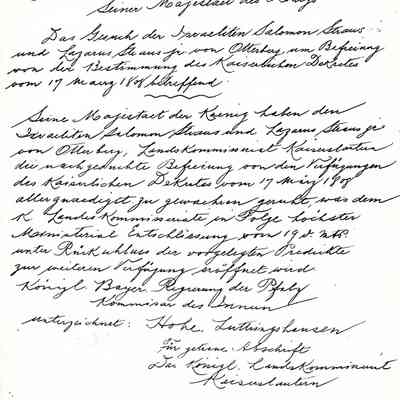 Seiner Magestaet des Königs
Das Gesuch der Israeliten Salomon Straus
und Lazarus Straus jr von Otterberg, um Befreiung
von der Bestimmung des Kaiserlichen Dekretes
vom 17 Maerz 1808 betreffend
Seine Magestaet der Koenig haben den
Israeliten Salomon Straus und Lazarus Straus jr
von Otterberg, Landskommissariat Kaiserslautern
die nachgesuchte Befreiung von den Verfügungen
des Kaiserlichen Dekretes vom 17 März 1808
allergnaedigst zu gewaehren geruht, was dem
K Landes Kommissariate in Folge höchster
Ministerial Entschliessung vom 19
unter Rückschluss der vorgelegten
zur weiteren Verfügung eröffnet wird
Königl Bayer. Regierung der Pfalz
Kommisar des Innern
unterzeichnet: Hohe. Luttringshausen
Für getreue Abschrift
Das Königl. Landskommissariat
Kaiserslautern